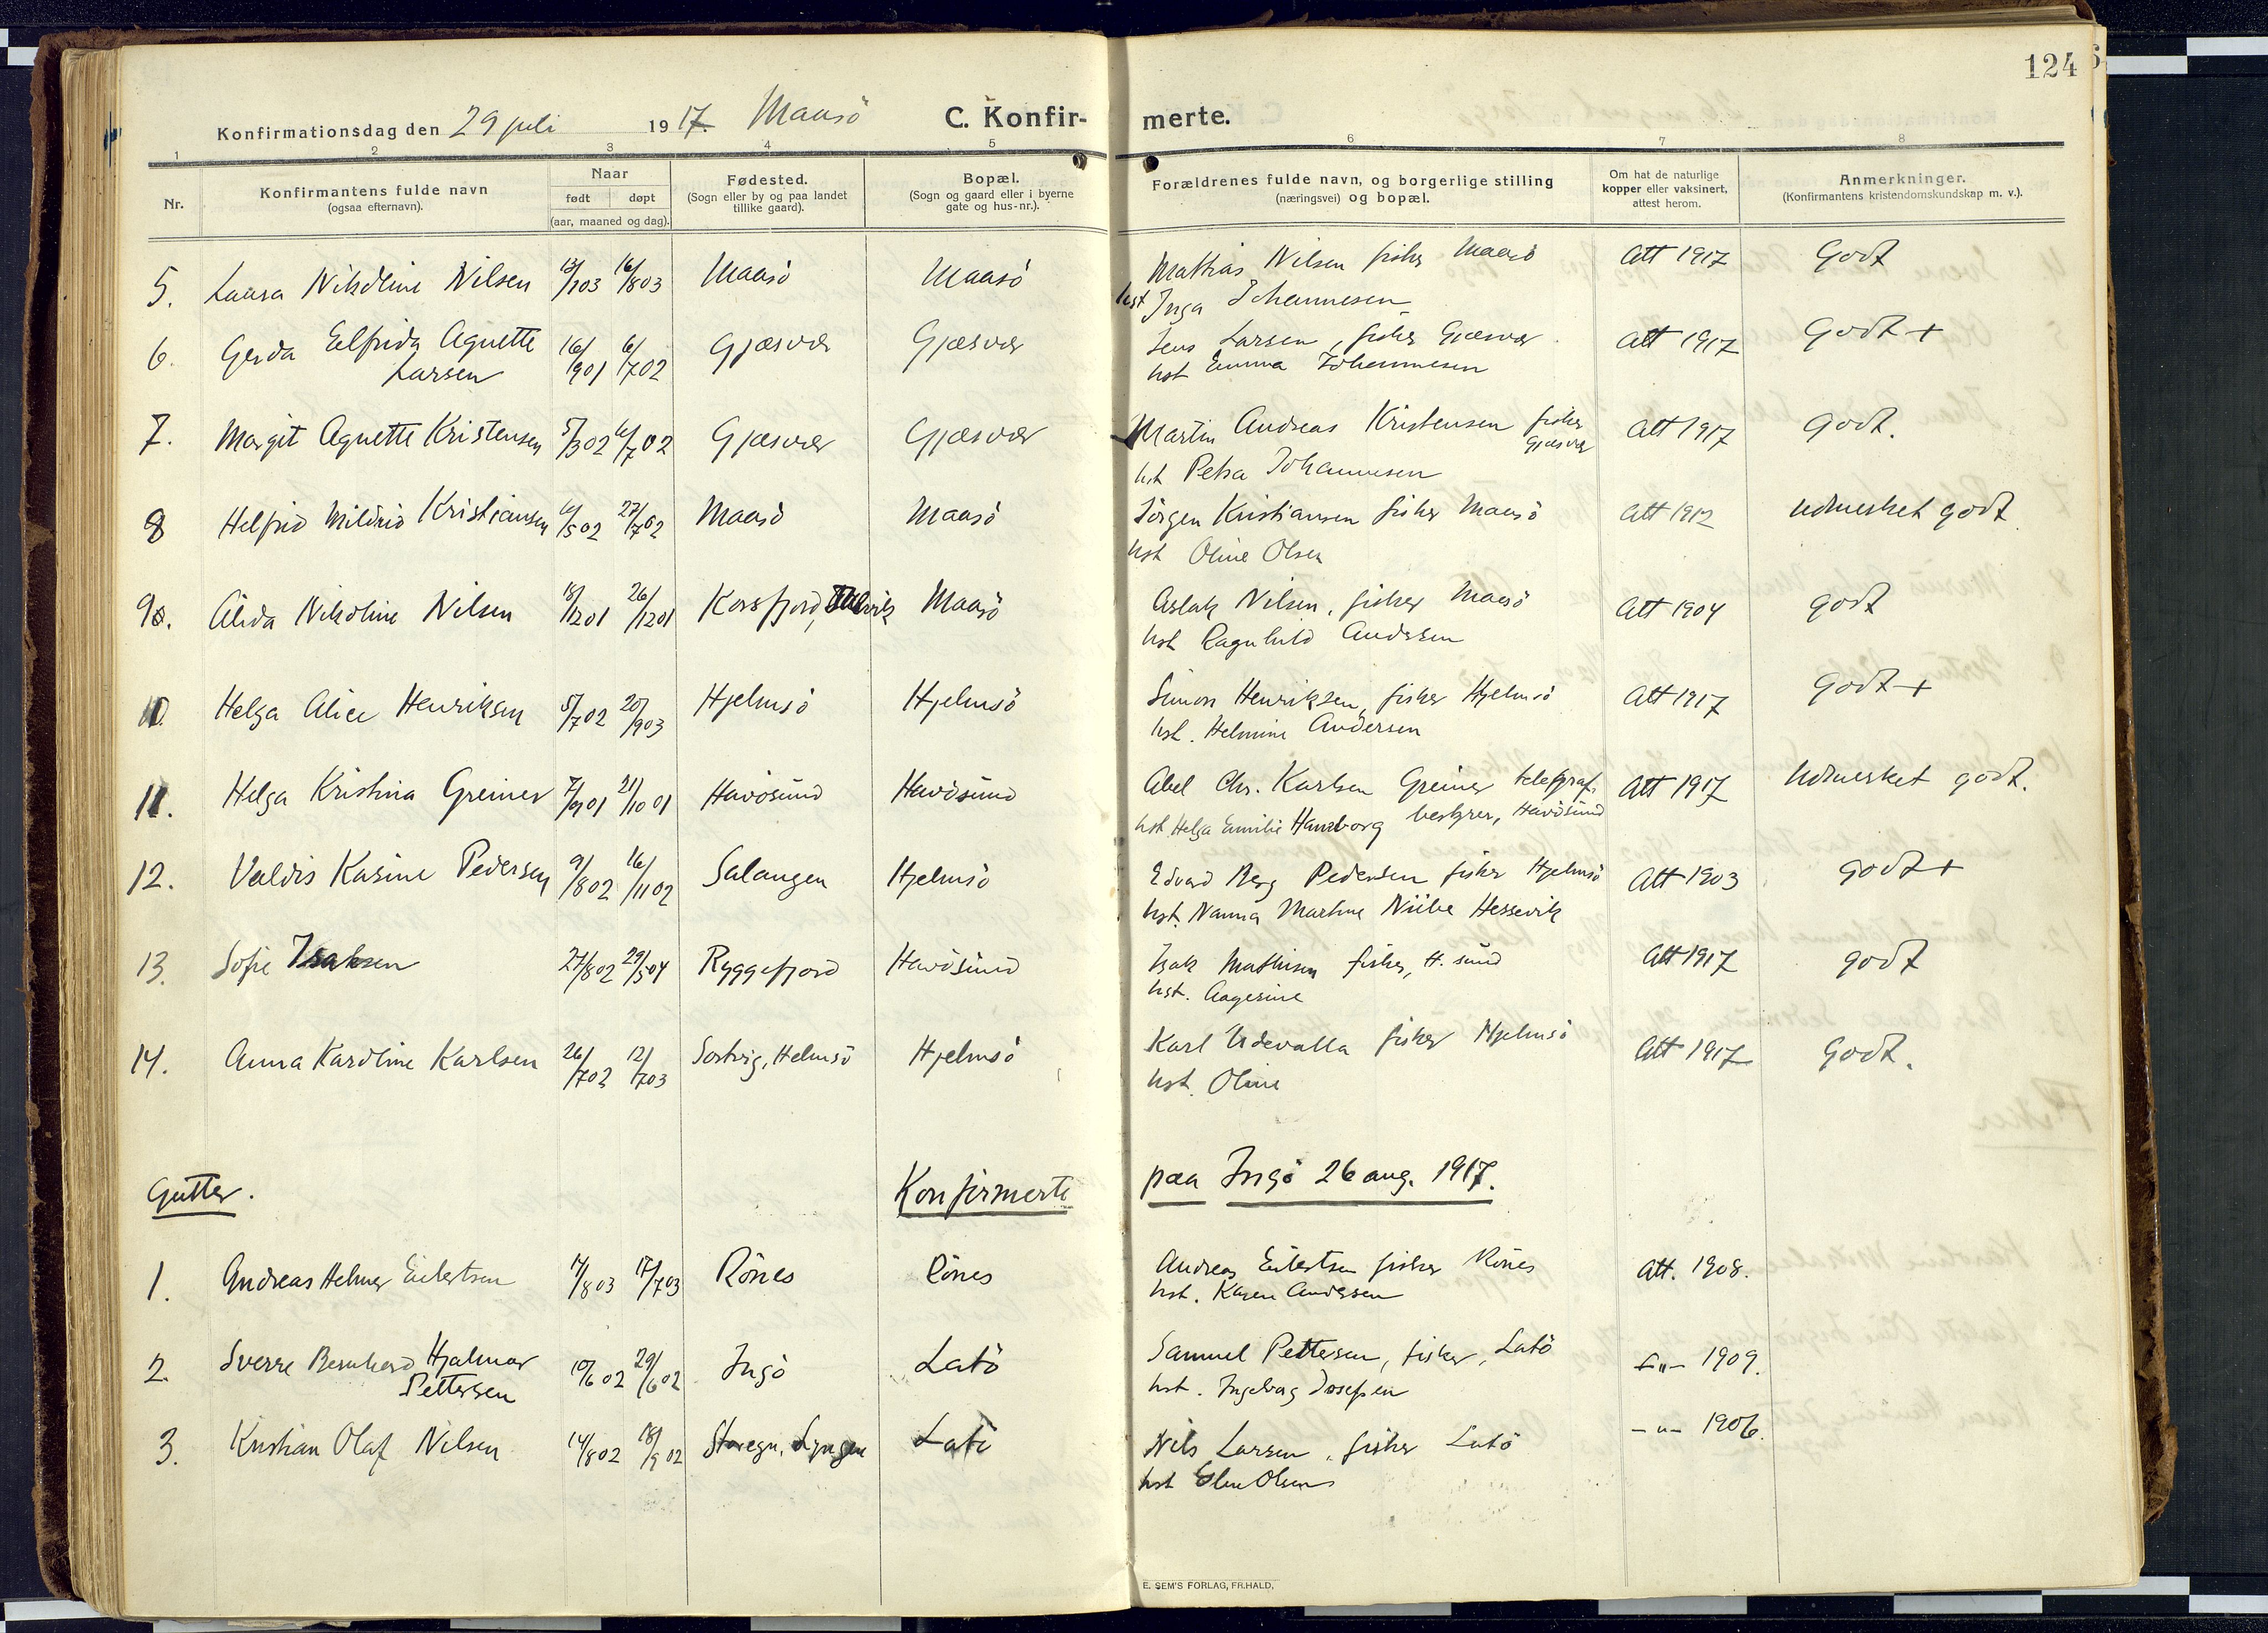 124
Konfirmationsdag den 29 juli 1917. Maasö C. Konfir- merte.
1 2 3 4 5 6 7 8
Nr.
Konfirmantens fulde navn
(ogsaa efternavn).
Naar
født døpt
(aar, maaned og dag).
Fødested.
(Sogn eller by og paa landet
tillike gaard).
Bopæl.
(Sogn og gaard eller i byerne
gate og hus-nr.).
Forældrenes fulde navn, og borgerlige stilling
(næringsvei) og bopæl.
Om hat de naturlige
kopper eller vaksinert,
attest herom.
Anmerkninger.
(Konfirmantens kristendomskundskap m. v.).
5. Laura Nikoline Nilsen 13/1 03 16/8 03 Maasö Maasö Mathias Nilsen fisker Maasö Att 1917 Godt
hst Inga Johannesen
6. Gerda Elfrida Agnette 16/9 01 6/7 02 Gjæsvær Gjæsvær Jens Larsen, fisker Gjæsvær Att 1917 Godt +
Larsen hst Emma Johannesen
7. Margit Agnette Kristensen 5/3 02 6/7 02 Gjæsvær Gjæsvær Martin Andreas Kristensen fisker Att 1917 Godt.
Gjæsvær
hst Petra Johannesen
8 Helfrid Mildrid Kristiansen 6/5 02 27/7 02 Maasö Maasö Jörgen Kristiansen fisker Maasö Att 1912 Udmerket godt
hst Oline Olsen
9. Alida Nikoline Nilsen 18/12 01 26/12 01 Korsfjord, Talvik Maasö Aslak Nilsen, fisker Maasö Att 1904 godt
hst Ragnhild Andersen
10. Helga Alice Henriksen 5/7 02 20/9 03 Hjelmsö Hjelmsö Simon Henriksen, fisker Hjelmsö Att 1917 Godt +
hst. Helmine Andersen
11. Helga Kristina Greiner 7/9 01 21/10 01 Havösund Havösund Abel Chr. Karlsen Greiner telegraf. Att 1917 Udmerket godt.
hst. Helga Emilie Hansborg bestyrer, Havösund
12. Valdis Kasine Pedersen 9/8 02 16/11 02 Salangen Hjelmsö Edvard Berg Pedersen fisker Hjelmsö Att 1903 godt +
hst. Nanna Martine Hessevik
13. Sofie Isaksen 27/8 02 29/5 04 Ryggefjord Havösund Isak Mathisen fisker, H. sund Att 1917 godt
hst. Aagesine
14. Anna Karoline Karlsen 26/7 02 12/7 03 Sortvig, Helmsö Hjelmsö Karl Udevalla fisker Hjelmsö Att 1917 Godt.
hst. Oline
Gutter. Konfirmerte paa Ingö 26 aug. 1917.
1. Andreas Helmer Eilertsen 17/7 03 Rönes Rönes Andreas Eilertsen fisker Rönes Att. 1908.
hst. Karen Andersen
2. Sverre Bernhard Hjalmar 10/6 02 29/6 02 Ingö Latö Samuel Pettersen, fisker, Latö -"- 1909.
Pettersen hst. Ingeborg Josefsen
3. Kristian Olaf Nilsen 14/8 02 18/9 02 Lyngen Latö Nils Larsen, fisker Latö -"- 1906.
hst Olsen
E. SEM'S FORLAG, FR.HALD.